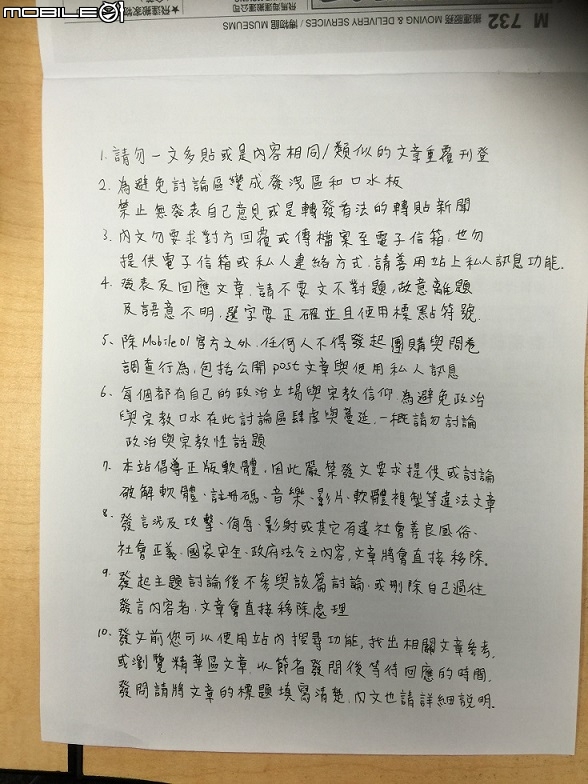 MOBILE01
★飛達搬家物
飛馬搬運公司
M 732 搬運服務 MOVING & DELIVERY SERVICES / 博物館 MUSEUMS
1. 請勿一文多貼或是內容相同/類似的文章重覆刊登
2. 為避免討論區變成發洩區和口水板
禁止無發表自己意見或是轉發首法的轉貼新聞
3. 內文勿要求對方回覆或傳檔案至電子信箱,也勿
提供電子信箱或私人連絡方式,請善用站上私人訊息功能.
4. 發表及回應文章,請不要文不對題,故意離題
及語意不明,選字要正確並且使用標點符號.
5. 除Mobile01官方之外,任何人不得發起團購與問卷
調查行為,包括公開post文章與使用私人訊息
6. 每個都有自己的政治立場與宗教信仰 為避免政治
與宗教口水在此討論區肆虐與蔓延,一概請勿討論
政治與宗教性話題
7. 本站倡導正版軟體,因此嚴禁發文要求提供或討論
破解軟體、註冊碼、音樂、影片、軟體複製等違法文章
8. 發言涉及攻擊、侮辱、影射或其它有違社會善良風俗、
社會正義、國家安全、政府法令之內容,文章將會直接移除.
9. 發起主題討論後不參與該篇討論,或刪除自己過往
發言內容者,文章會直接移除處理
10. 發文前您可以使用站內搜尋功能,找出相關文章參考,
或瀏覽精華區文章,以節省發問後等待回應的時間.
發問請將文章的標題填寫清楚,內文也請詳細說明.